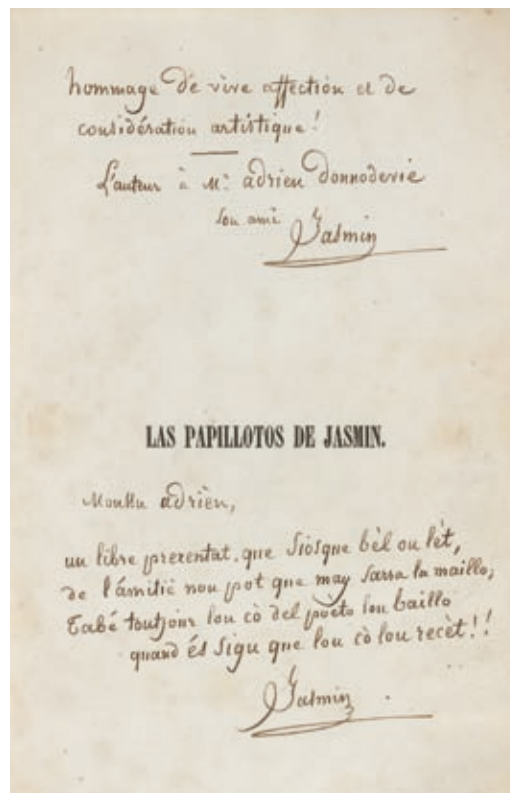 hommage de vive affection et de
considération artistique!
L'auteur à Mr. adrien donnodevie
son ami
Jasmin
LAS PAPILLOTOS DE JASMIN.
Moussu adrièn,
un libre prezentat, que siosque bèl ou lèt,
de l'amitiè nou pot que may sarra la maillo;
Tabé toutjour lou cò del poèto lou baillo
quand és sigu que lou cò lou recèt!!
Jasmin